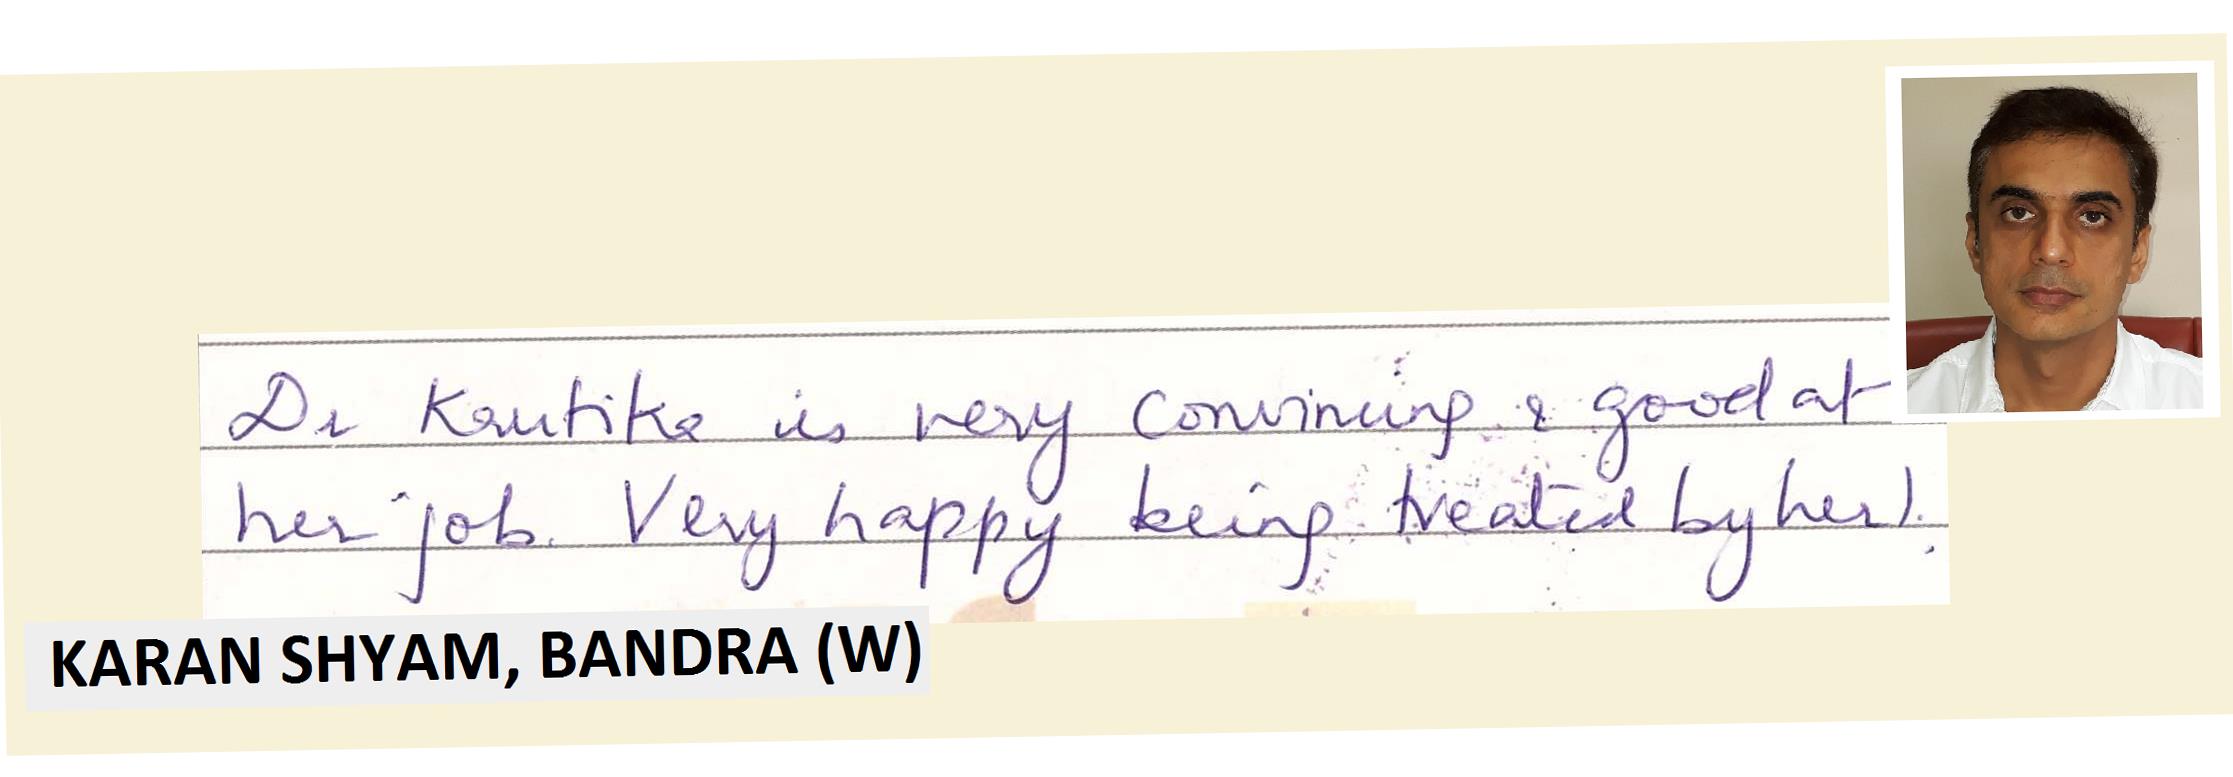 Dr Krutika is very convincing & good at
her job. Very happy being treated by her).
KARAN SHYAM, BANDRA (W)